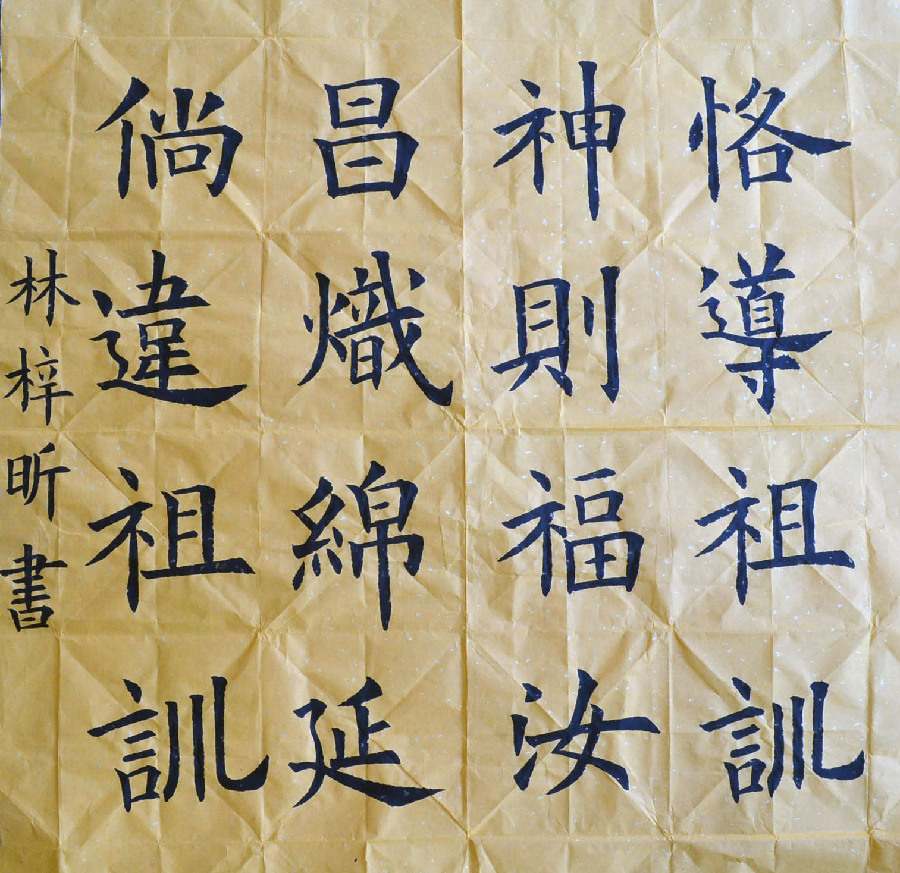 恪導祖訓
神則福汝
昌熾綿延
倘違祖訓
林梓昕書